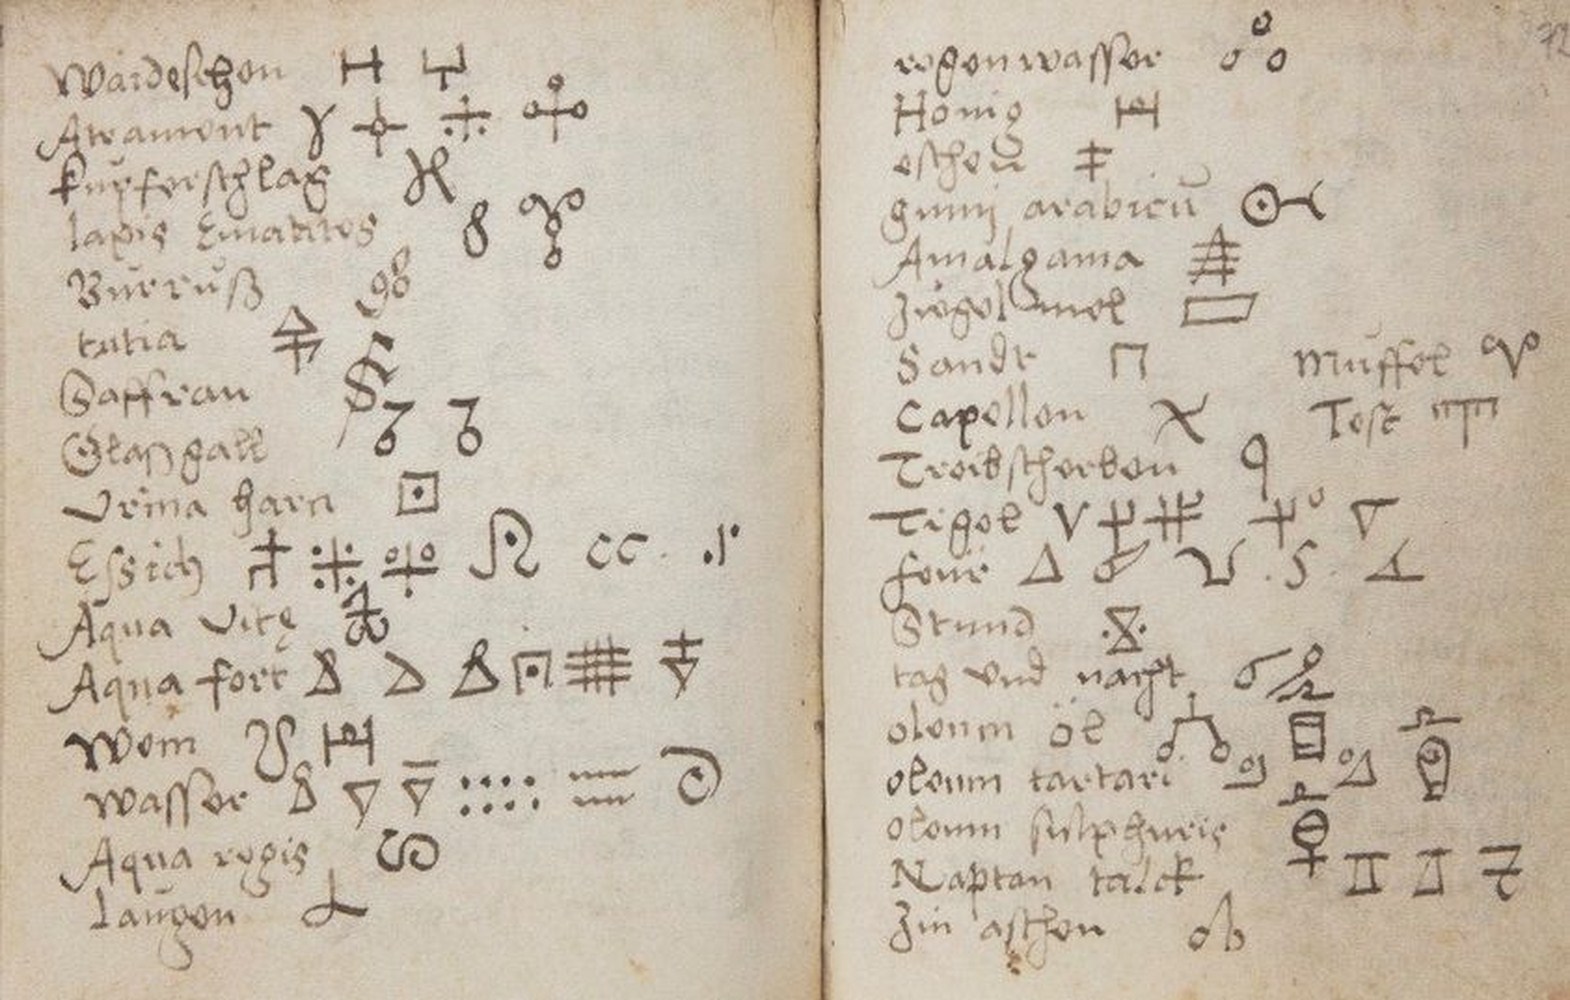 Waideschen
Atrament
kupferschlag
lapis Ematites
Burruß
tutia
Saffran
Glaßgall
Vrina harn
Essich cc.
Aqua vitę
Aqua fort
Wein
wasser
Aqua regis
Laugen
72
regenwasser
Honig
eschen
gumj arabicū
Amalgama
Ziegel mel
Sandt Muffel
Capellen Test
Treibscherben
Tigel
feur
Stund
tag vnd nacht
oleum öl
oleum tartari
oleum sulphuris
Naptan talck
Zin aschen